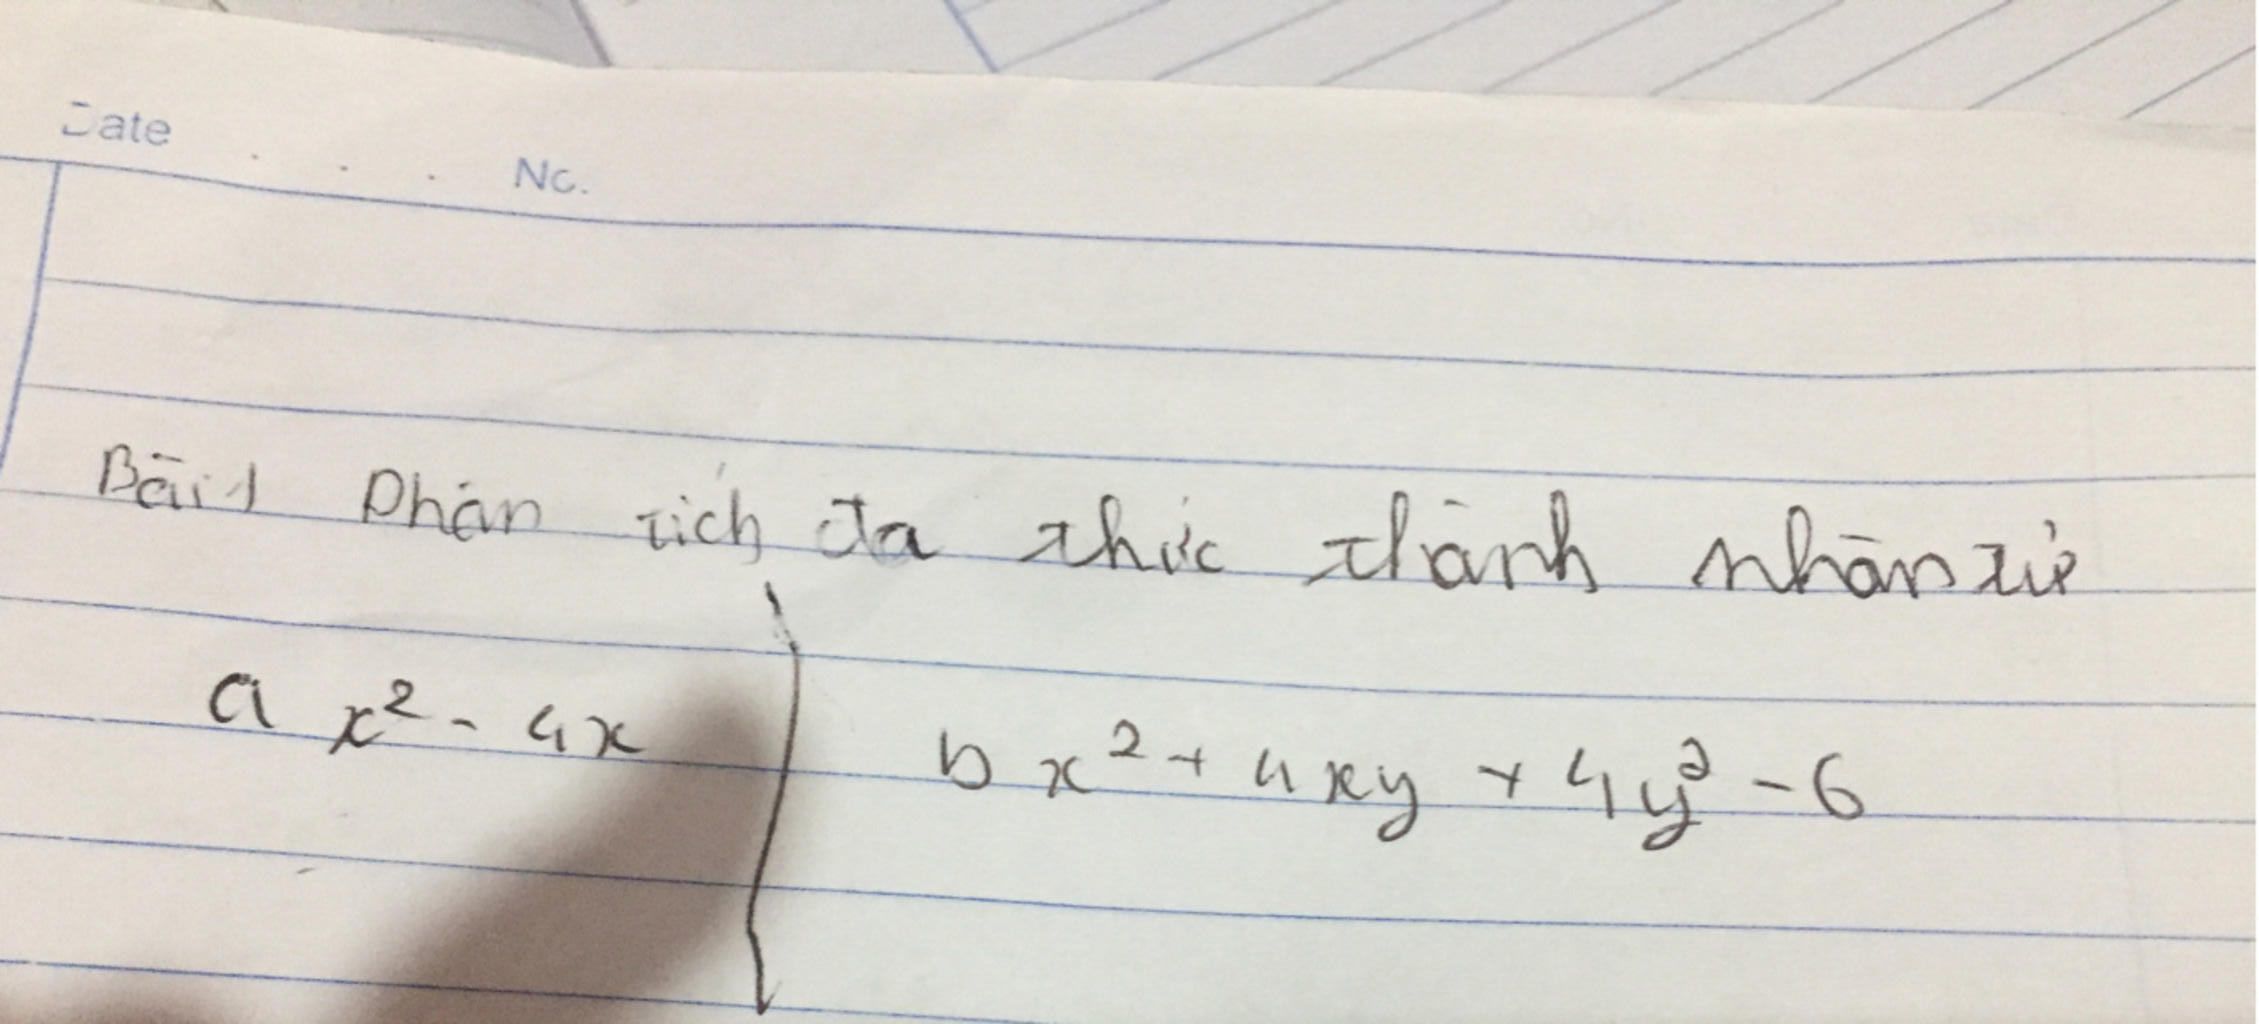 Date No.
Bài 1 Phân tích đa thức thành nhân tử
a x² - 4x
b x² + 4xy + 4y² - 6